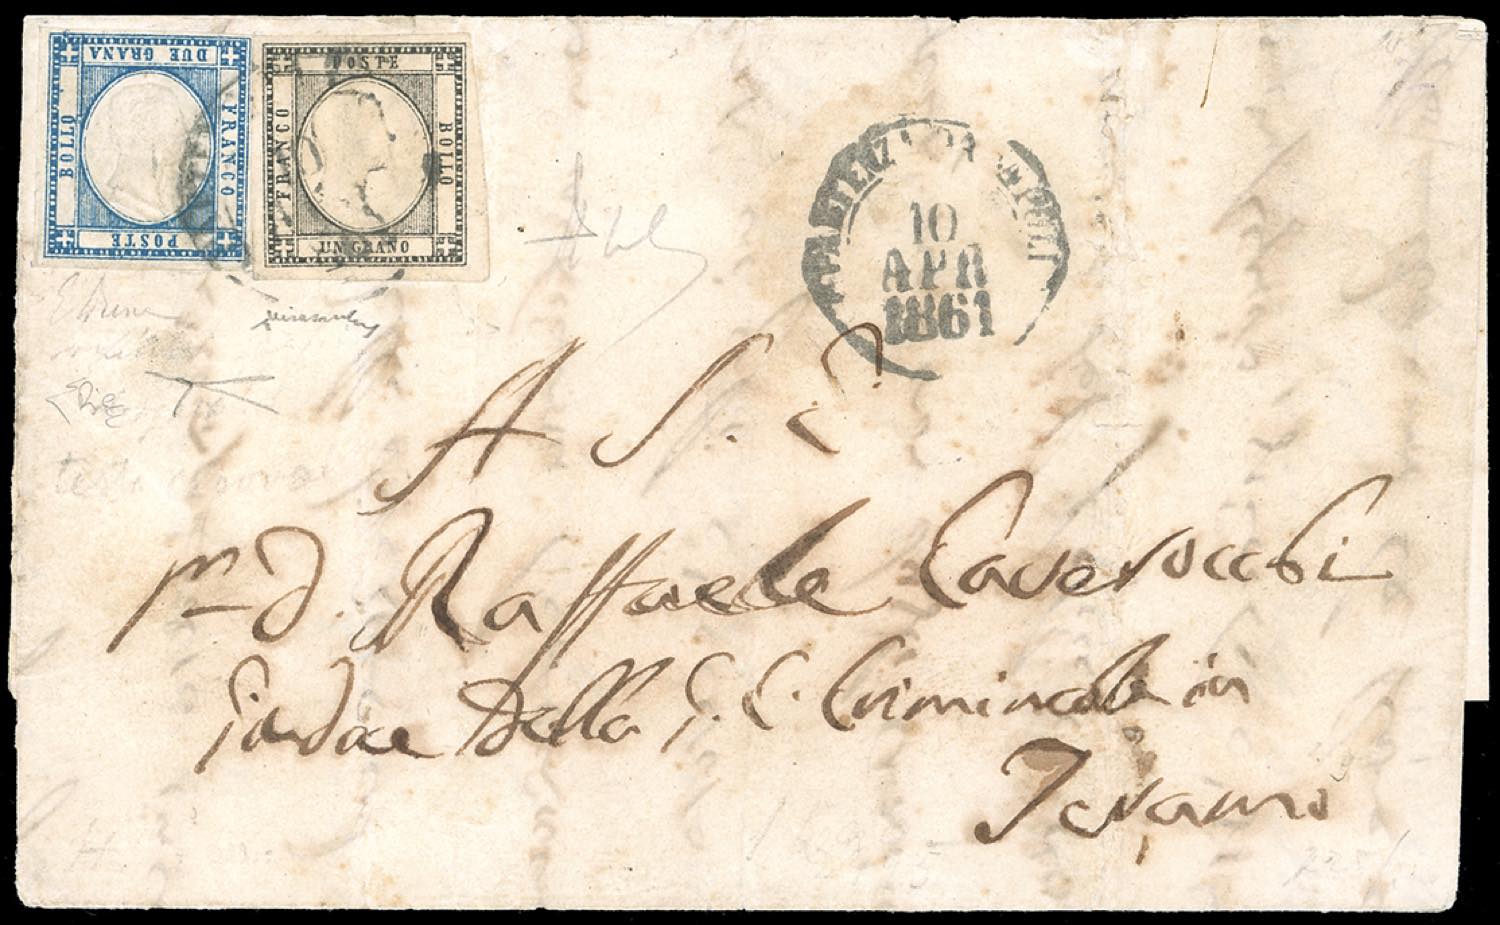 DUE GRANA
BOLLO
FRANCO
POSTE
POSTE
FRANCO
BOLLO
UN GRANO
PARTENZA DA NAPOLI
10
APR
1861
A S. E.
D. Raffaele Caverocchi
Giudice Della G. C. Criminale in
Teramo